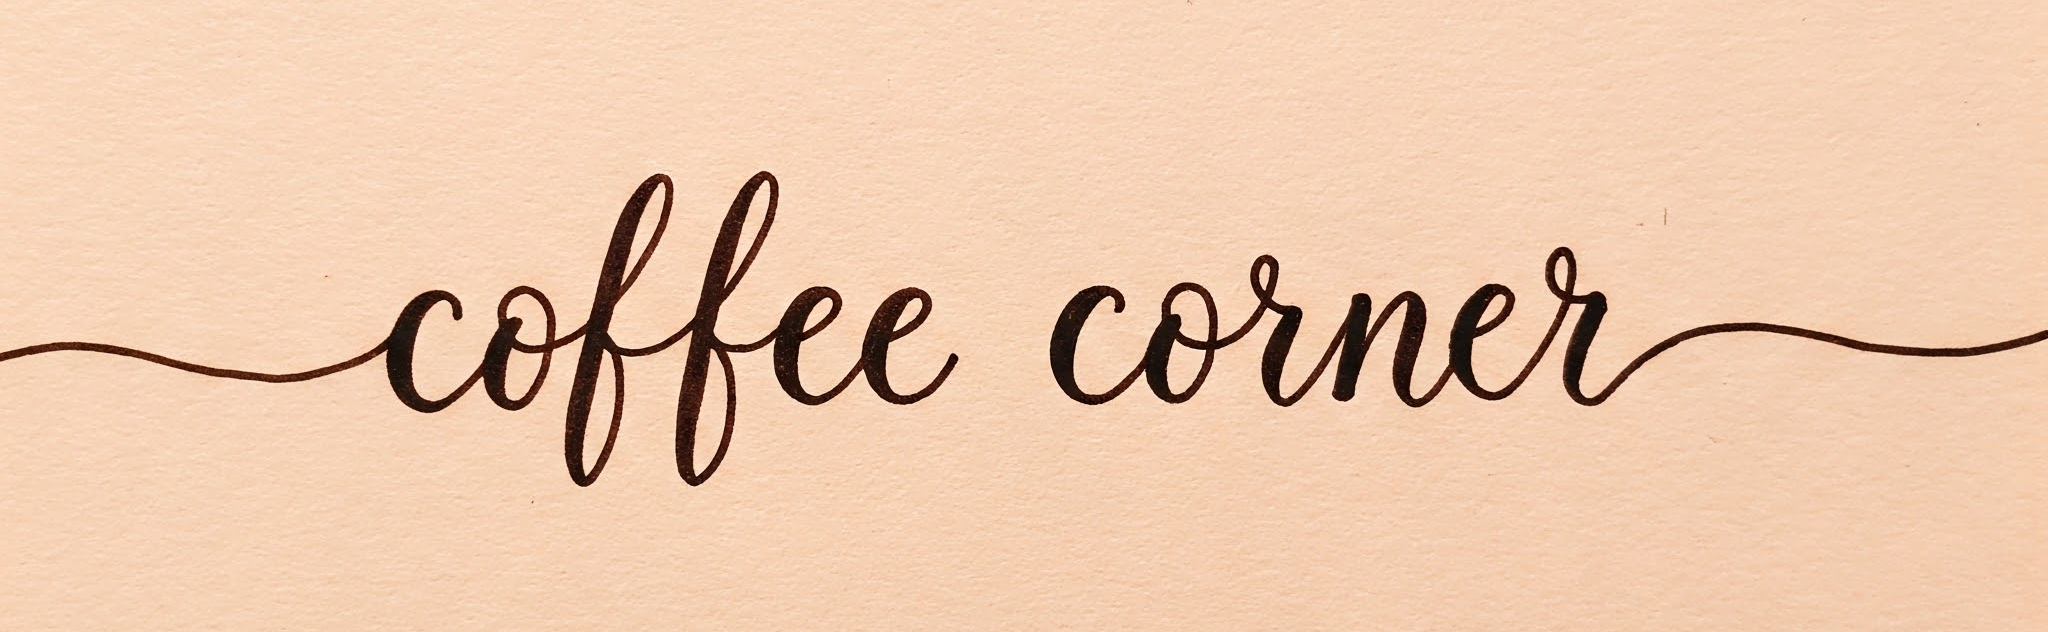 coffee corner